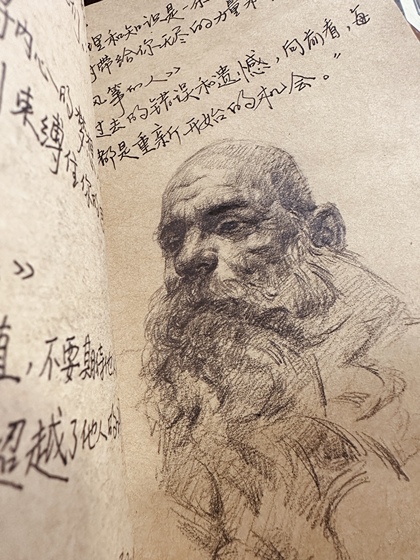 理和知识是一
带给你无尽的力量
等的人》
过去的错误和遗憾，向前看，每
都是重新开始的机会。”
内心的
束缚住你的
》
值，不要期待他
超越了他人的